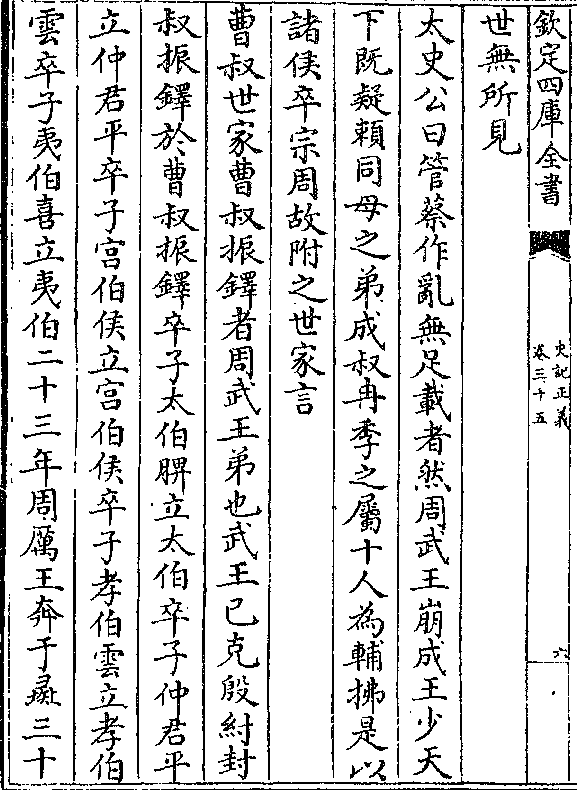 欽定四庫全書
史記正義
卷三十五
六
世無所見
太史公曰管蔡作亂無足載者然周武王崩成王少天
下既疑賴同母之弟成叔冉季之屬十人為輔拂是以
諸侯卒宗周故附之世家言
曹叔世家曹叔振鐸者周武王弟也武王已克殷紂封
叔振鐸於曹叔振鐸卒子太伯脾立太伯卒子仲君平
立仲君平卒子宫伯侯立宫伯侯卒子孝伯雲立孝伯
雲卒子夷伯喜立夷伯二十三年周厲王奔于彘三十